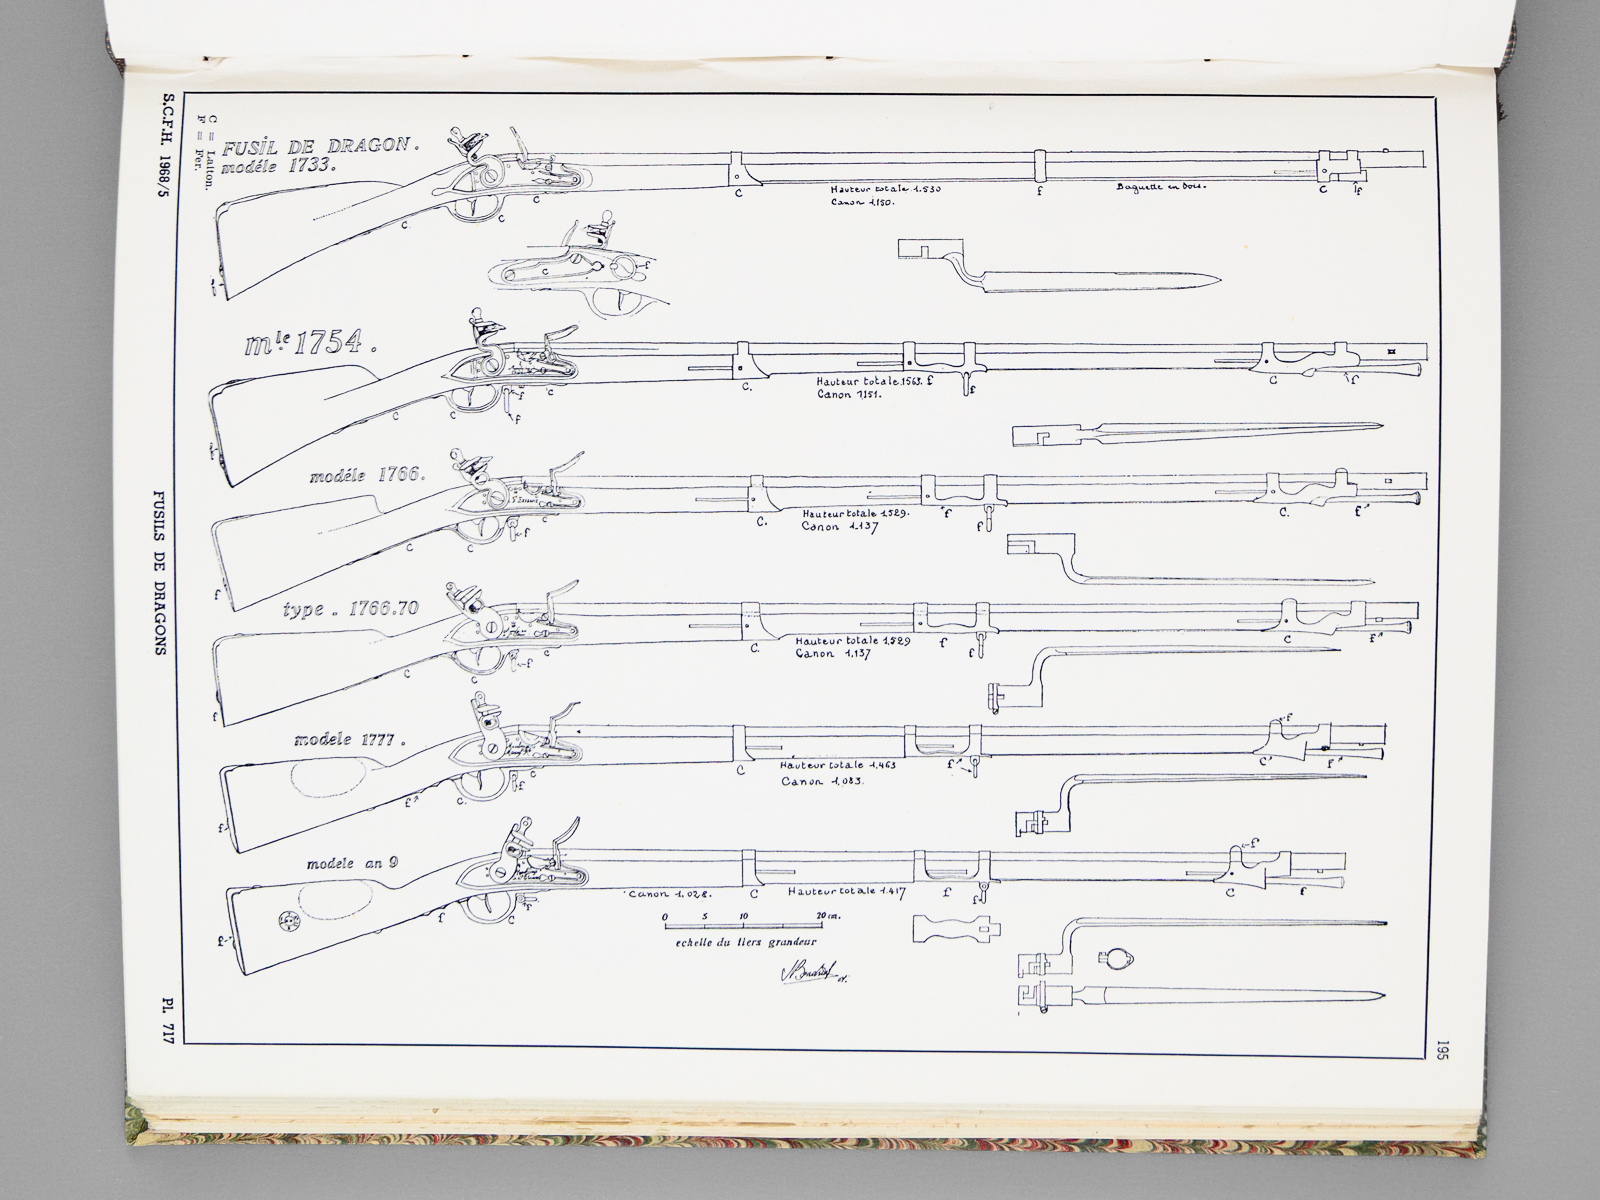 S.C.F.H. 1968/5
FUSILS DE DRAGONS
Pl. 717
195
C = Laiton.
F = Fer.
FUSIL DE DRAGON.
modéle 1733.
C
C
C
C
Hauteur totale 1.530
Canon 1,150.
f
Baguette en bois.
C
f
C
f
mle 1754.
C
C
f
f
C
C.
Hauteur totale 1563.
Canon 1,151.
f
f
C
f
modéle 1766.
f
C
C
f
C
C.
Hauteur totale 1,529.
Canon 1,137
f
f
C.
f
type . 1766.70
f
C
C
f
C
C.
Hauteur totale 1,529
Canon 1,137
f
f
C
f
modele 1777 .
f
f
C.
f
C
C
Hauteur totale 1,463
Canon 1,083.
f
f
C
f
modele an 9
f
f
C
f
Canon 1,028.
C
Hauteur totale 1.417
f
f
f
C
f
0 5 10 20 cm.
echelle du tiers grandeur